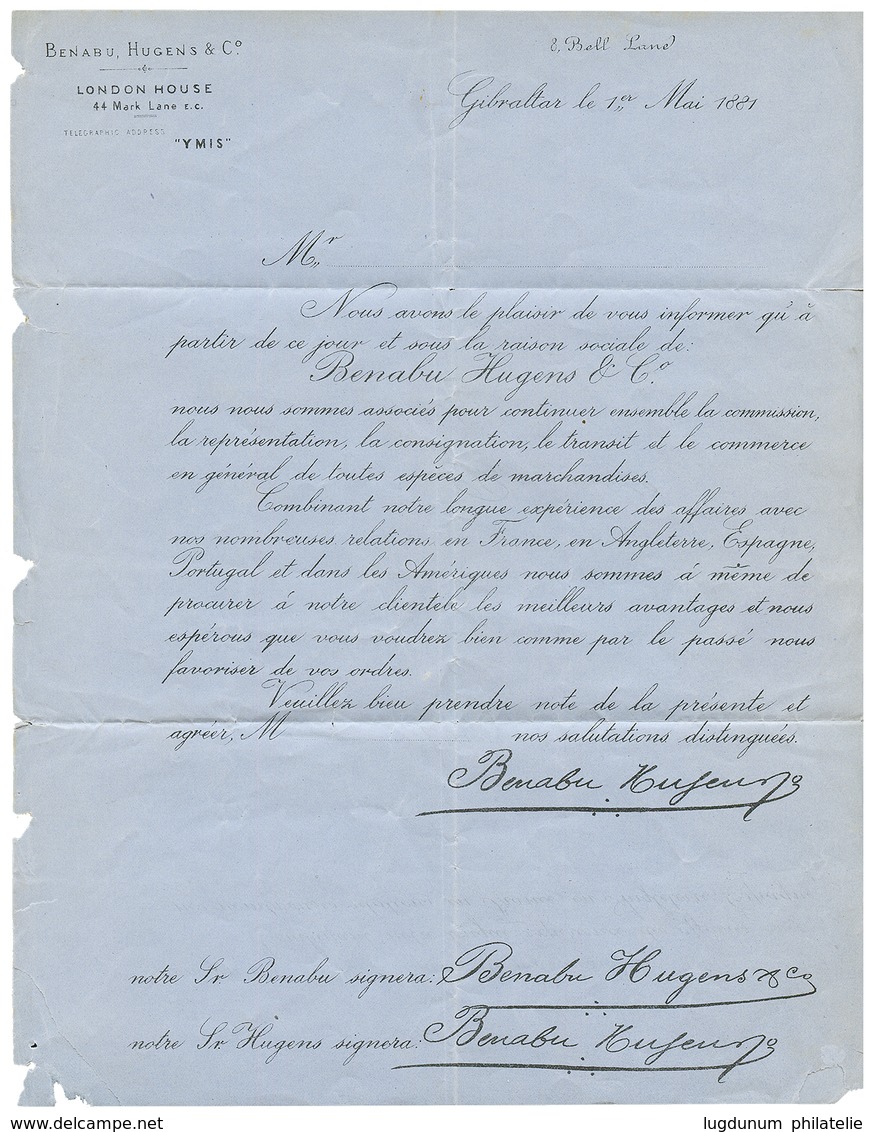 BENABU, HUGENS & Cº
LONDON HOUSE
44 Mark Lane E.C.
TELEGRAPHIC ADDRESS
"YMIS"
8, Bell Lane
Gibraltar le 1er Mai 1881
Mr
Nous avons le plaisir de vous informer qu'à
partir de ce jour et sous la raison sociale de:
Benabu Hugens & Cº
nous nous sommes associés pour continuer ensemble la commission,
la représentation, la consignation, le transit et le commerce
en général de toutes espèces de marchandises.
Combinant notre longue expérience des affaires avec
nos nombreuses relations en France, en Angleterre, Espagne,
Portugal et dans les Amériques nous sommes á même de
procurer á notre clientele les meilleurs avantages et nous
espérous que vous voudrez bien comme par le passé nous
favoriser de vos ordres.
Veuillez bieu prendre note de la présente et
agréer, M nos salutations distinguées.
Benabu Hugens Co
notre Sr Benabu signera: Benabu Hugens & Co
notre Sr Hugens signera: Benabu Hugens Co
lugdunum philatelie